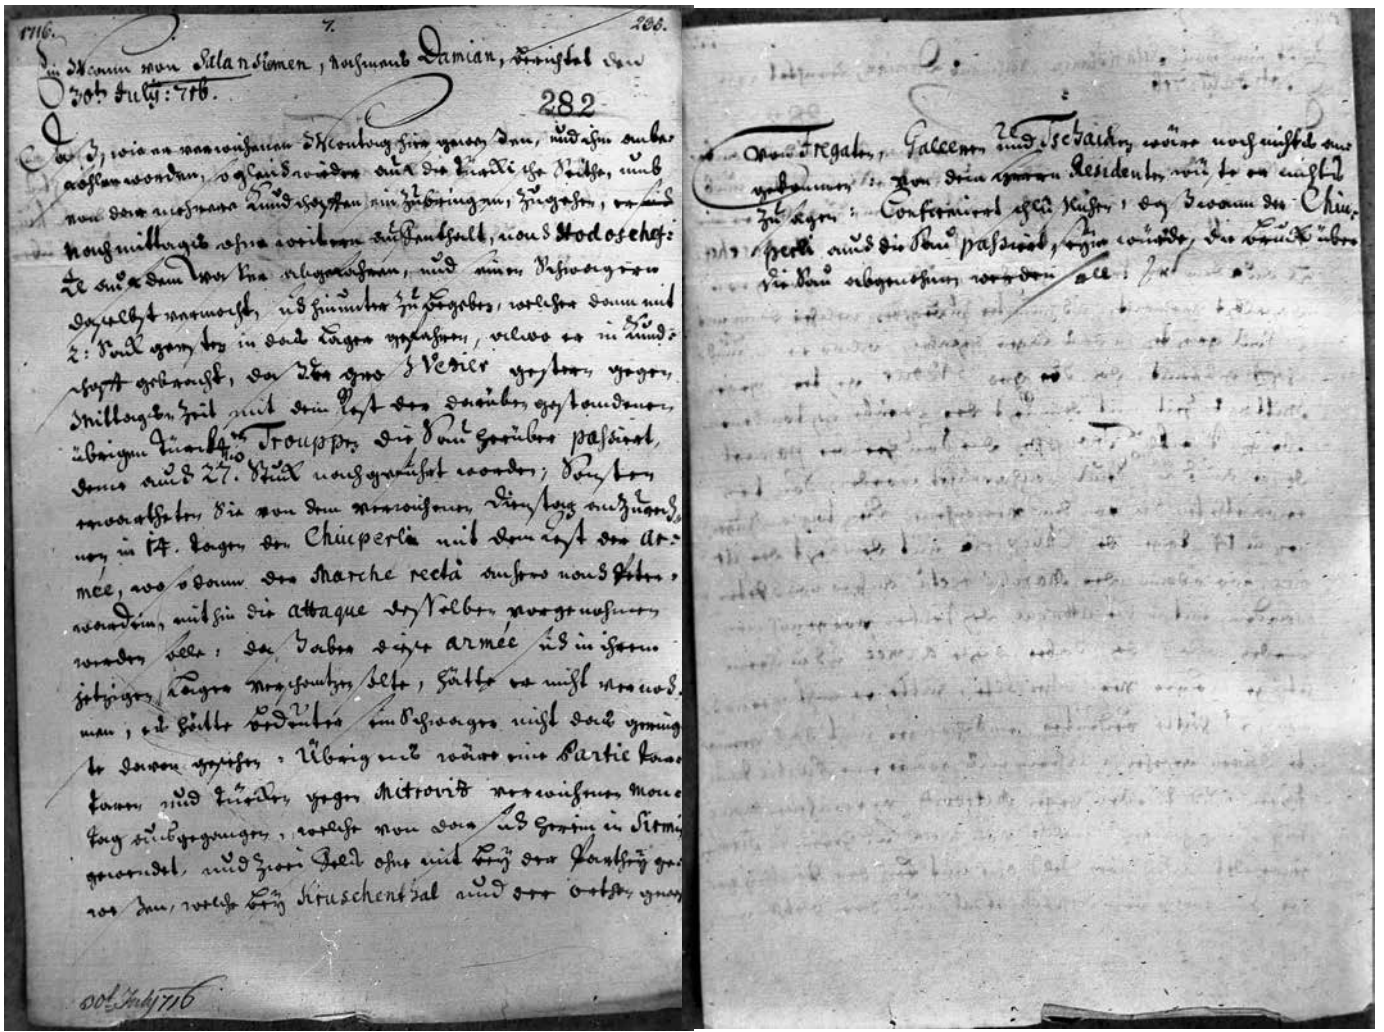 1716. 7. 236.
Ein Mann von Salansiemen, Nahmens Damian, berichtet den
30ten July: 716.
282
Daß, wie er verwichenen Montag hier gewesen, und ihm anbe-
fohlen worden, sogleich wieder auf die Türckische Seithe, umb
von dar mehrere Kundschafften einzubringen, zugehen, er
nachmittags ohne weitern auffenthalt, nach
auf dem Wasser abgefahren, und einen Schwagern
daselbst vermocht, sich hinunter zu begeben, welcher dann mit
2: Sack gersten in das Lager gefahren, alwo er in Kund-
schafft gebracht, daß der groß Vezier gestern gegen
Mittags Zeit mit dem Rest der darüben gestandenen
übrigen Türckischen Trouppen die Sau herüber passiert,
deme auch 27. Stuck nachgeführt worden; Sonsten
erwartheten Sie von dem verwichenen Dienstag anzurech-
nen in 14. Tagen den Chiuperli mit dem Rest der Ar-
mée, wo sodann der Marche rectà anhero nach Peter-
wardein, mithin die attaque desselben vorgenohmen
werden solle: daß aber diese Armée sich in ihrem
jetzigen Lager verschantzen solte, hätte er nicht vernoh-
men, es hätte bedeuter sein Schwager nicht das gering-
ste davon gesehen: Übrigens wäre eine Partie Tar-
taren und Türcken gegen Mitrovitz verwichenen Mon-
tag ausgegangen, welche von dar sich herein in Sirmi
gewendet, und zwei bey der Parthey ge-
weßen, welche bey Kruschenthal und der orthen
30t July 716
Von Fregaten, Galleren und Tschaicken wäre noch nichts an-
gekommen: Von dem Herrn Residenten wüste er nichts
zu sagen: Confirmiert, daß wann der Chiu-
perli auch die Sau passiert seyn würde, die Bruck über
die Sau abgenohmen werden solle: